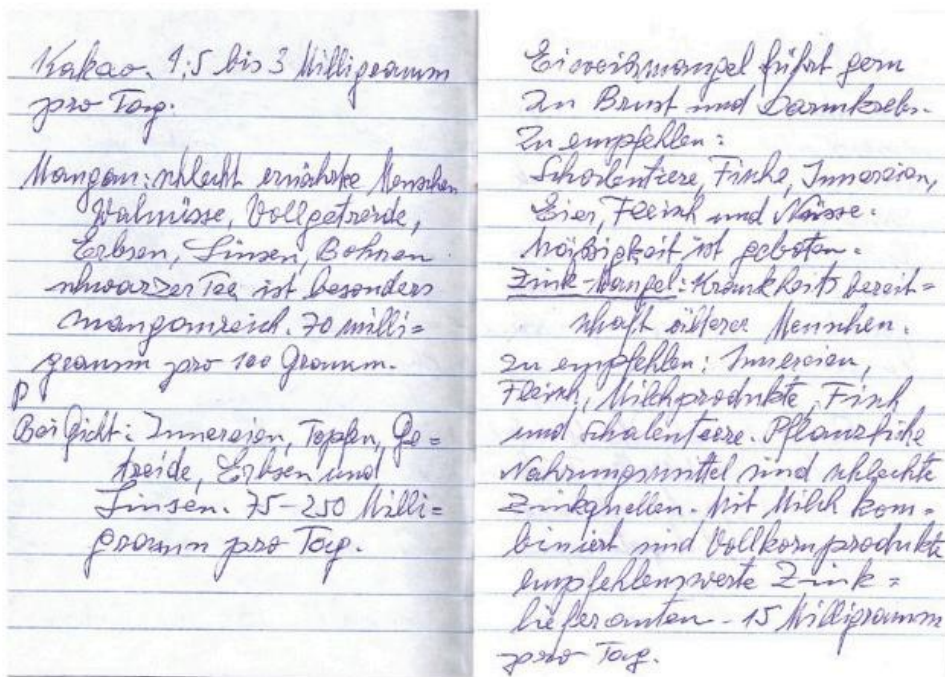 Kakao. 1,5 bis 3 Milligramm
pro Tag.
Mangan: schlecht ernährte Menschen
Walnüsse, Vollgetreide,
Erbsen, Linsen, Bohnen
schwarzer Tee ist besonders
manganreich. 70 milli=
gramm pro 100 Gramm.
P
Bei Gicht: Innereien, Topfen, Ge=
treide, Erbsen und
Linsen. 75-250 Milli=
gramm pro Tag.
Eiweißmangel führt gern
zu Brust und Darmkrebs.
Zu empfehlen:
Schalentiere, Fische, Innereien,
Eier, Fleisch und Nüsse.
Mäßigkeit ist geboten.
Zink-Mangel: Krankheitsbereit=
schaft älterer Menschen.
zu empfehlen: Innereien,
Fleisch, Milchprodukte, Fisch
und Schalentiere. Pflanzliche
Nahrungsmittel sind schlechte
Zinkquellen. Mit Milch kom=
biniert sind Vollkornprodukte
empfehlenswerte Zink=
lieferanten - 15 Milligramm
pro Tag.